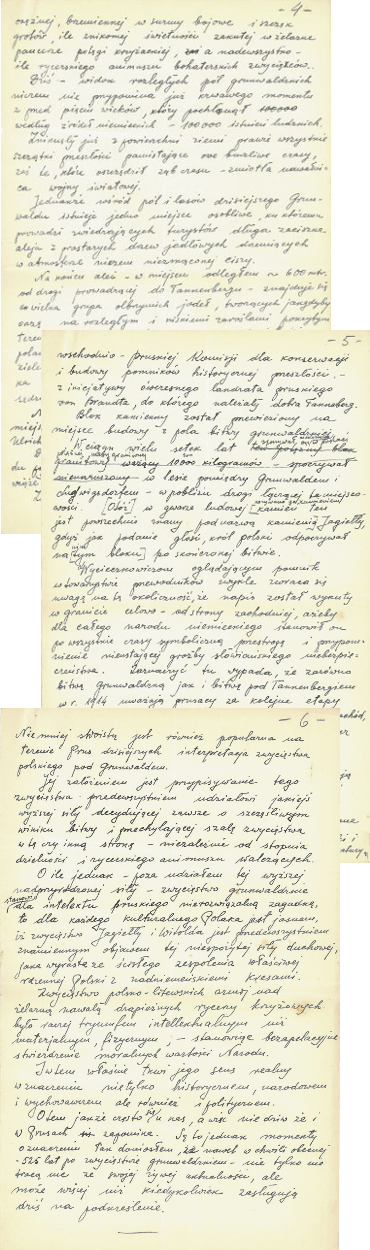 - 4 -
orężnej, brzemiennej w surmy bojowe i szczęk
grotów, ile znikomej świetności zakutej w żelazne
pancerze potęgi krzyżackiej, a nadewszystko -
ile rycerskiego animuszu bohaterskich zwycięzców.
Dziś - widok rozległych pól grunwaldzkich
niczem nie przypomina już krwawego momentu
z przed pięciu wieków, który pochłonął
według źródeł niemieckich - 100000 istnień ludzkich.
Zniknęły już z powierzchni ziemi prawie wszystkie
szczątki przeszłości pamiętające owe burzliwe czasy,
zaś te, które oszczędził ząb czasu - zmiotła nawałni-
ca wojny światowej.
Jednakże wśród pól i lasów dzisiejszego Grun-
waldu istnieje jedno miejsce osobliwe, ku któremu
prowadzi zwiedzających turystów długa zaciszna
aleja z prastarych drzew jodłowych drzemiących
w atmosferze niczem niezmąconej ciszy.
Na końcu alei - w miejscu odległem o 600 mtr.
od drogi prowadzącej do Tannenbergu - znajduje się
niewielka grupa olbrzymich jodeł, tworzących jakgdyby
oazę na rozległym i niskiemi zaroślami pokrytym
- 5 -
wschodnio - pruskiej Komisji dla konserwacji
i budowy pomników historycznej przeszłości. -
z inicjatywy ówczesnego landrata pruskiego
von Brandta, do którego należały dobra Tannenberg.
Blok kamienny został przewieziony na
miejsce budowy z pola bitwy grunwaldzkiej.
W ciągu wielu setek lat blok
granitowy ważący 10000 kilogramów - spoczywał
w lesie pomiędzy Grunwaldem i
Ludwigsdorfem - w pobliżu drogi łączącej te miejsco-
wości. w gwarze ludowej kamień ten
jest powszechnie znany pod nazwą kamienia Jagiełły,
gdyż jak podanie głosi, król polski odpoczywał
na tym bloku po skończonej bitwie.
Wycieczkowiczom oglądającym pomnik
w towarzystwie przewodników zwykle zwraca się
uwagę na tę okoliczność, że napis został wykuty
w granicie celowo - od strony zachodniej, ażeby
dla całego narodu niemieckiego stanowił on
po wszystkie czasy symboliczną przestrogę i przypom-
nienie nieustającej groźby słowiańskiego niebezpie-
czeństwa. Zaznaczyć tu wypada, że zarówno
bitwę grunwaldzką jak i bitwę pod Tannenbergiem
w r. 1914 uważają prusacy za kolejne etapy
- 6 -
Niemniej swoistą jest również popularna na
terenie Prus dzisiejszych interpretacja zwycięstwa
polskiego pod Grunwaldem.
Jej założeniem jest przypisywanie tego
zwycięstwa przedewszystkiem udziałowi jakiejś
wyższej siły decydującej zawsze o szczęśliwym
wyniku bitwy i przechylającej szalę zwycięstwa
w tę czy inną stronę - niezależnie od stopnia
dzielności i rycerskiego animuszu walczących.
O ile jednak - poza udziałem tej wyższej
nadprzyrodzonej siły - zwycięstwo grunwaldzkie
stanowi dla intelektu pruskiego nierozwiązalną zagadkę,
to dla każdego kulturalnego Polaka jest jasnem,
iż zwycięstwo Jagiełły i Witolda jest przedewszystkiem
znamiennym objawem tej niespożytej siły duchowej,
jaka wyrasta ze ścisłego zespolenia właściwej
rdzennej Polski z nadniemeńskiemi kresami.
Zwycięstwo polsko - litewskich armij nad
żelazną nawałą drapieżnych rycerzy krzyżackich
było raczej tryumfem intellektualnym niż
materjalnym, fizycznym, - stanowiąc bezapelacyjne
stwierdzenie moralnych wartości Narodu.
I w tem właśnie tkwi jego sens realny
w znaczeniu nietylko historycznem, narodowem
i wychowawczem ale również i politycznem.
O tem jakże często i u nas, a więc nie dziw że i
w Prusach się zapomina. Są to jednak momenty
o znaczeniu tak doniosłem, że nawet w chwili obecnej
- 525 lat po zwycięstwie grunwaldzkiem - nie tylko nie
tracą nic ze swojej żywej aktualności, ale
może więcej niż kiedykolwiek zasługują
dziś na podkreślenie.